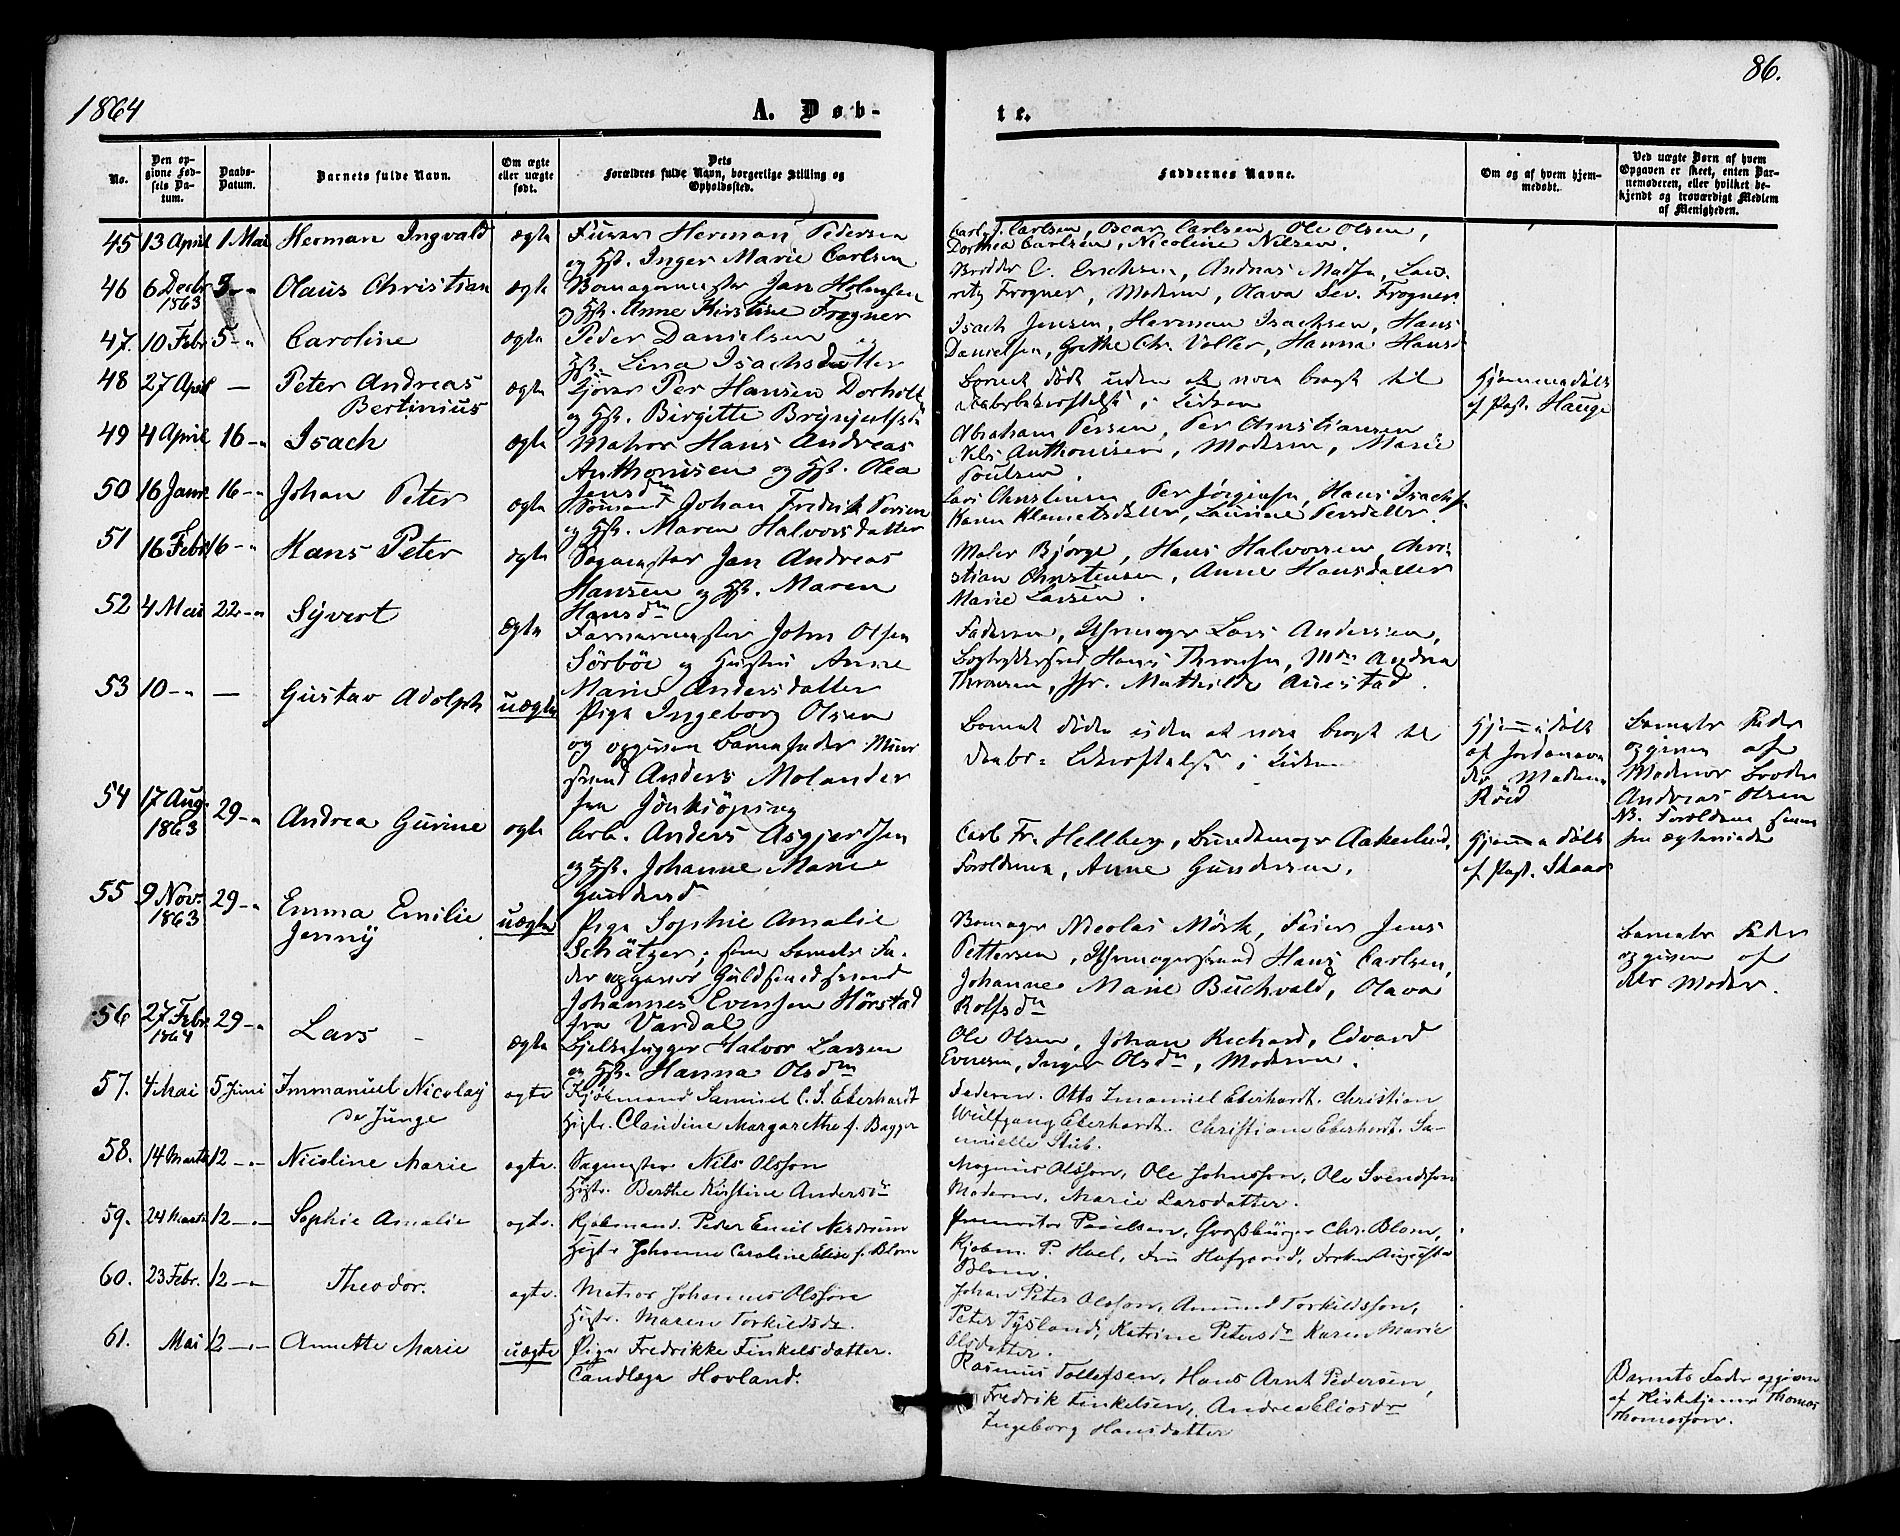 1864
A. Døb-
te.
86.
No.
Den op-
givne Fød-
sels Da-
tum.
Daabs-
Datum.
Barnets fulde Navn.
Om ægte
eller uægte
født.
Dets
Forældres fulde Navn, borgerlige Stilling og
Opholdssted.
Faddernes Navne.
Om og af hvem hjem-
medøbt.
Ved uægte Børn af hvem
Opgaven er skeet, enten Bar-
nemoderen, eller hvilket be-
kjendt og troværdigt Medlem
af Menigheden.
45 13 April 1 Mai Herman Ingvald ægte Herman Pedersen
og Hst. Inger Marie Carlsen
Carl J. Carlsen, Oscar Carlsen, Ole Olsen,
Dorthea Carlsen, Nicoline Nilsen.
46 6 Decbr 1863 Olaus Christian ægte Jan Holmsen
og Hst. Anne Kirstine Frogner
C. Erichsen, Andreas Lau-
ritz Frogner, Moderen, Olava Sev. Frogner
47. 10 Febr 5 - " Caroline ægte Peder Danielsen og
Hst. Lina Isachsdatter
Isach Jensen, Herman Isachsen, Hans
Danielsen, Grethe Chr. Voller, Hanna
48 27 April — Peter Andreas
Bertinius ægte Per Hansen Dorholt
og Hst. Birgitte Brynjulfsd.
Barnet død uden at være bragt til
i Kirken
Hjemmedøbt
af Past. Hauge
49 4 April 16 - " Isach ægte Matros Hans Andreas
Anthonisen og Hst. Olea
Jensdtr
Abraham Persen, Per Christiansen,
Nils Anthonisen, Moderen, Marie
Poulsen.
50 16 Janr. 16 - " Johan Peter ægte Sømand Johan Fredrik
og Hst. Maren Halvorsdatter
Lars Christensen, Per Jørgensen, Hans Isachs.
Karen Klemetsdatter, Laurine Persdatter.
51 16 Febr. 16 - " Hans Peter ægte Jan Andreas
Hansen og Hst. Maren
Hansdtr
Maler Bjørge, Hans Halvorsen, Chri-
stian Christensen, Anne Hansdatter
Marie Larsen.
52 4 Mai 22 - " Syvert Ægte John Olsen
Sörböe og Hustru Anne
Marie Andersdatter
Faderen, Uhrmager Lars Andersen,
Hans Thronsen, Andrea
Thronsen, Jfr. Mathilde Auestad.
53 10 - " — Gustav Adolph uægte Pige Ingeborg Olsen
og opgiven Barnefader Muur
svend Anders Molander
fra Jönkiöping
Barnet døde uden at være bragt til
Daabs- i Kirken
Hjemmedøbt
af Jordemo-
der Madam
Röed
Barnets Fader
opgiven af
Moderens Broder
Andreas Olsen
54 17 Aug. 1863 29 - " Andrea Gurine ægte Arb. Anders Asgjerdsen
og Hst. Johanne Marie
Gundersd
Carl Fr. Hellberg, Bundtmager Aakerlund,
Forældrene, Anne Gundersen.
Hjemmedøbt
af Past. Skaar
NB. Forældrene
55 9 Nov. 1863 29 - " Emma Emilie
Jenny uægte Pige Sophie Amalie
Schätzer; som Barnets Fa-
der opgives Guldsmedsvend
Johannes Evensen Hörstad
fra Vardal
Nicolas Mörk, Feier Jens
Pettersen, Uhrmagersvend Hans Carlsen,
Johanne Marie Buchvald, Olava
Rolfsdtr
Barnets Fader
opgiven af
dets Moder.
56 27 Febr. 1864 29 - " Lars Ægte Halvor Larsen
og Hst. Hanna Olsdtr
Ole Olsen, Johan Richard, Edvard
Evensen, Inger Olsdtr, Moderen.
57. 4 Mai 5 Juni Immanuel Nicolay
de Junge ægte Kjøbmand Samuel C. S. Eberhardt
Hustr. Claudine Margarethe f. Bagger
Faderen. Otto Imanuel Eberhardt. Christian
Wulfgang Eberhardt. Christiane Eberhardt. Sa-
muelle Stub.
58. 14 Marts 12 - " Nicoline Marie ægte. Nils Olsson
Hustr. Berthe Kirstine Andersdr
Magnus Olsson, Ole Johnsson, Ole Svendsson
Moderen, Marie Larsdatter.
59. 24 Marts 12 - " Sophie Amalie ægte. Kjøbmand. Peder Emil Nerdrum
Hustr Johanne Caroline Elise f. Blom
Poulsen, Chr. Blom,
Kjøbm. P. Hoel, Fru
Blom.
60. 23 Febr. 12 - " Theodor. ægte. Matros Johannes Olsson
Hustr. Maren Torkildsdr.
Johan Peter Olsson, Amund Torkildsson,
Peter Tysland, Katrine Petersdr Karen Marie
Olsdatter.
61. Mai 12 - " Annette Marie uægte Pige Fredrikke Finkelsdatter.
Hovland.
Rasmus Tollefsen, Hans Arnt Pedersen,
Fredrik Finkelsen, Andrea Eliasdr
Ingeborg Hansdatter
Barnets Fader opgiven
af Kirketjener Thomas
Thomasson.